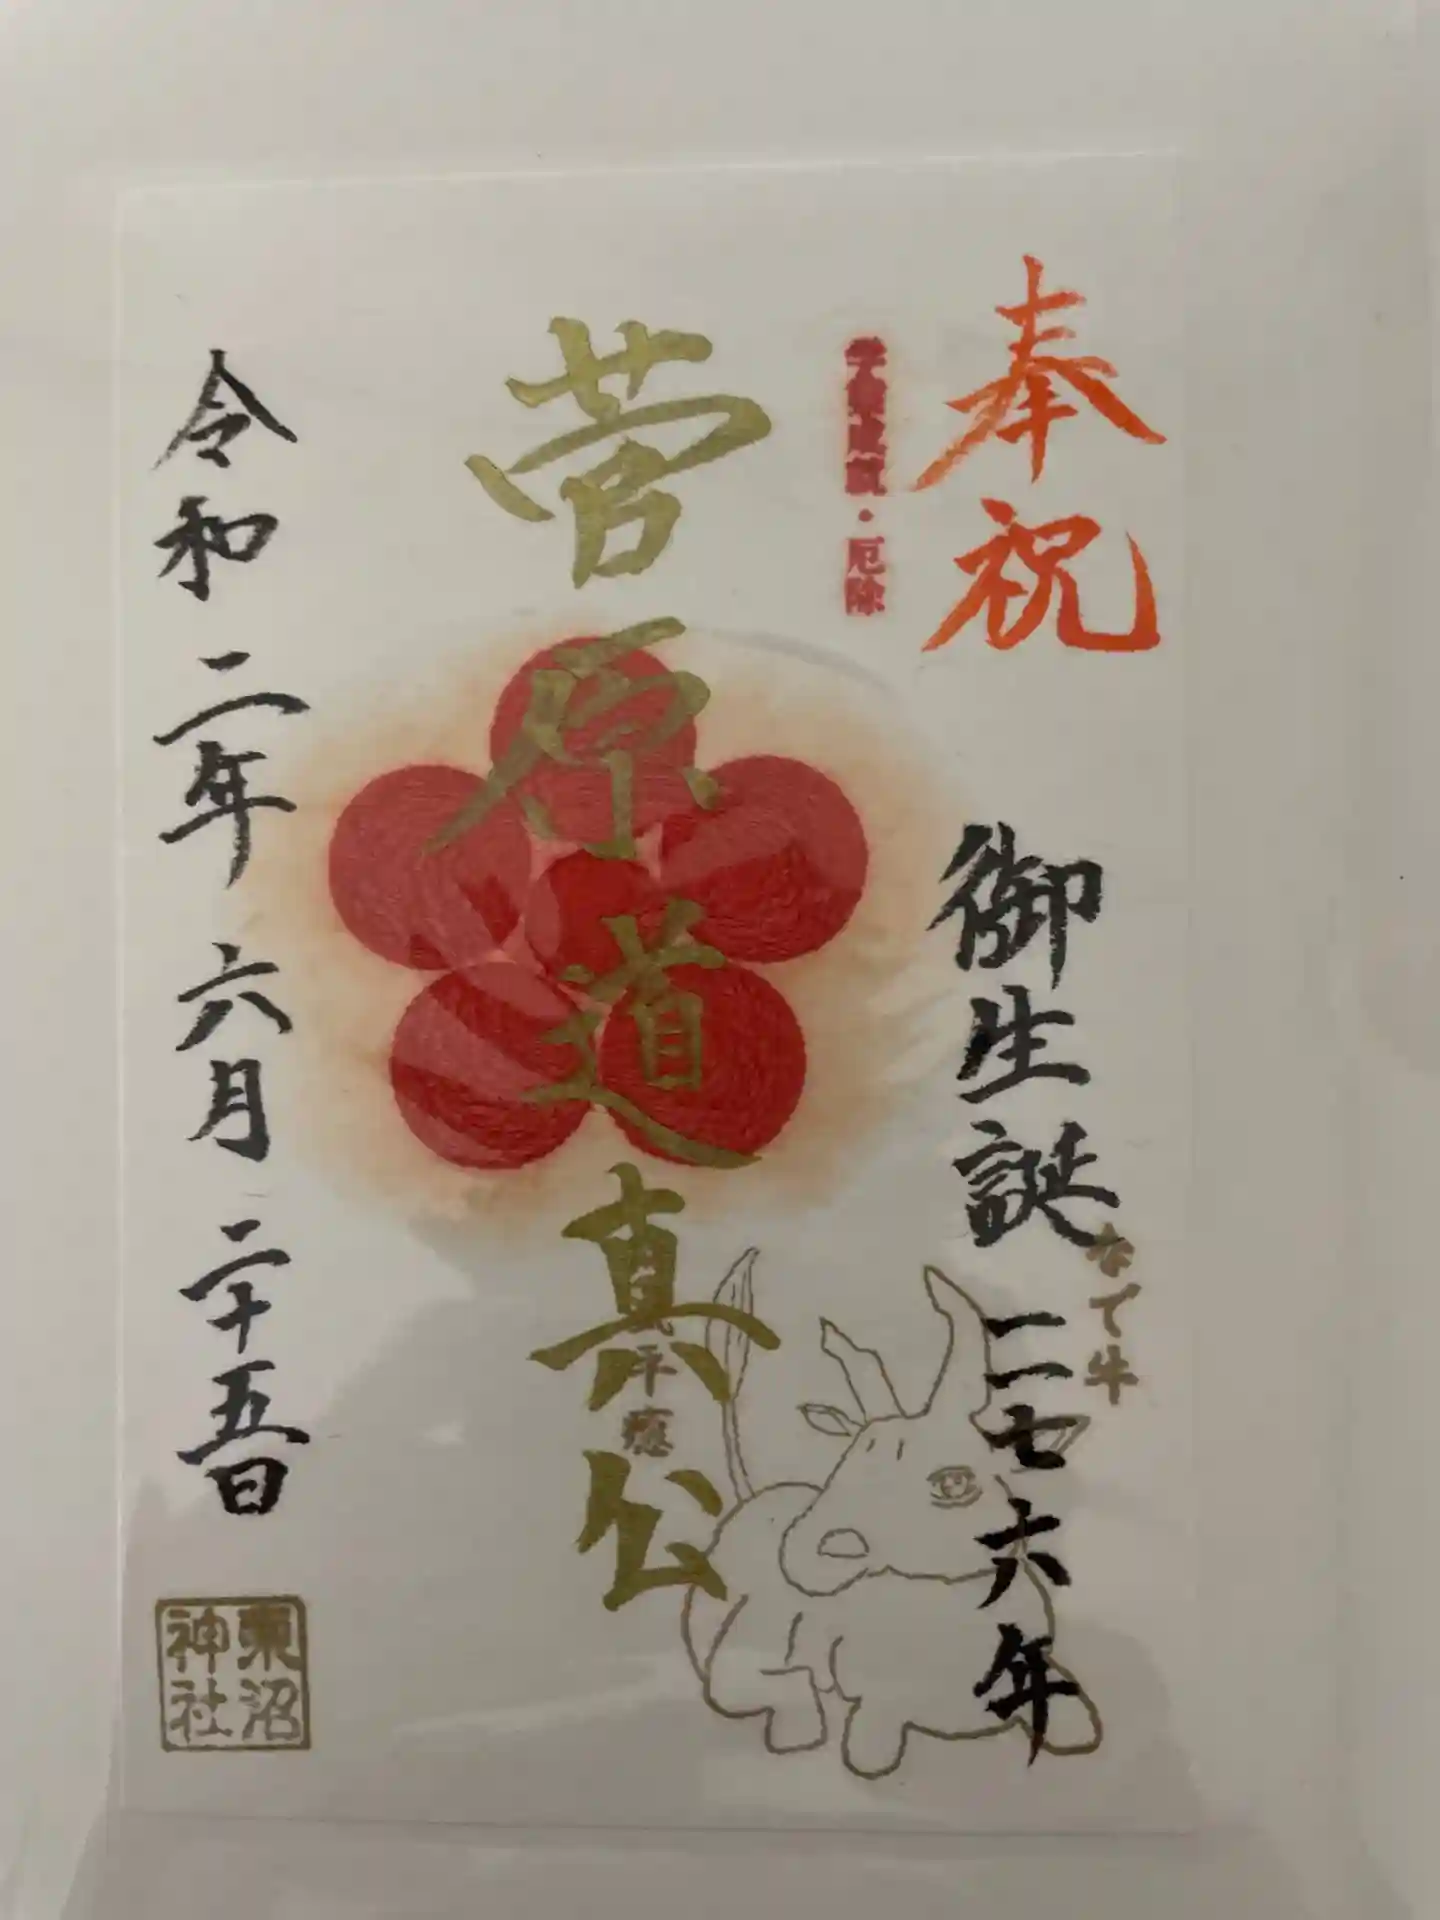 奉祝
御生誕一一七六年
なで牛
学業成就・厄除
菅原道真公
平癒
令和二年六月二十五日
東沼
神社